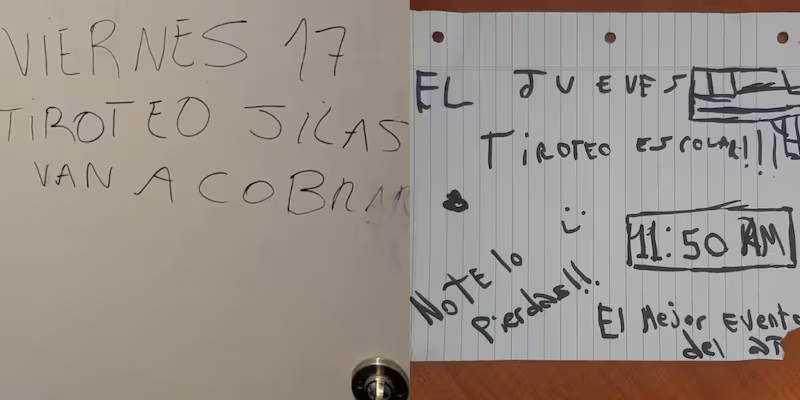 VIERNES 17
TIROTEO JILAS
VAN A COBRAR
EL JUEVES
TIROTEO ESCOLAR!!!
:)
11:50 AM
NO TE lo
pierdas!!.
El Mejor evento
del